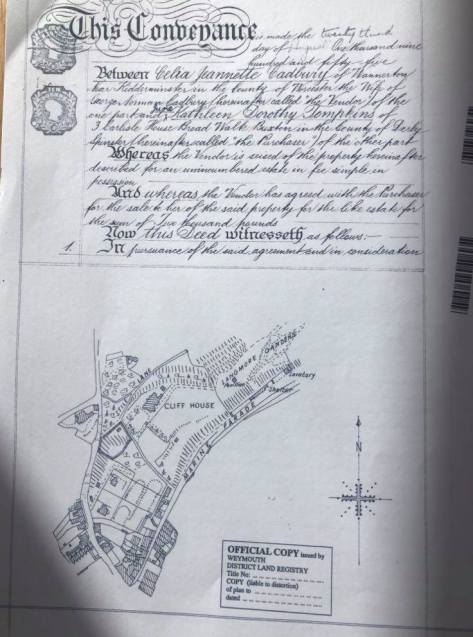 This Conveyance
is made the twenty third
day of August One thousand nine
hundred and fifty-five
Between Celia Jeannette Cadbury of Wannerton
near Kidderminster in the County of Worcester the Wife of
George Norman Cadbury (hereinafter called the Vendor) of the
one part and Kathleen Dorothy Tompkins of
3 Carlisle House Broad Walk Buxton in the County of Derby
Spinster (hereinafter called "the Purchaser") of the other part
Whereas the Vendor is seized of the property hereinafter
described for an unincumbered estate in fee simple in
possession
And whereas the Vendor has agreed with the Purchaser
for the sale to her of the said property for the like estate for
the sum of Two thousand pounds
Now this Deed witnesseth as follows:—
1. In pursuance of the said agreement and in consideration
LANE
CLIFF HOUSE
LANGMOOR GARDENS
Pavilion
Lavatory
Shelter
MARINE PARADE
N
OFFICIAL COPY issued by
WEYMOUTH
DISTRICT LAND REGISTRY
Title No:
COPY (liable to distortion)
of plan to
dated